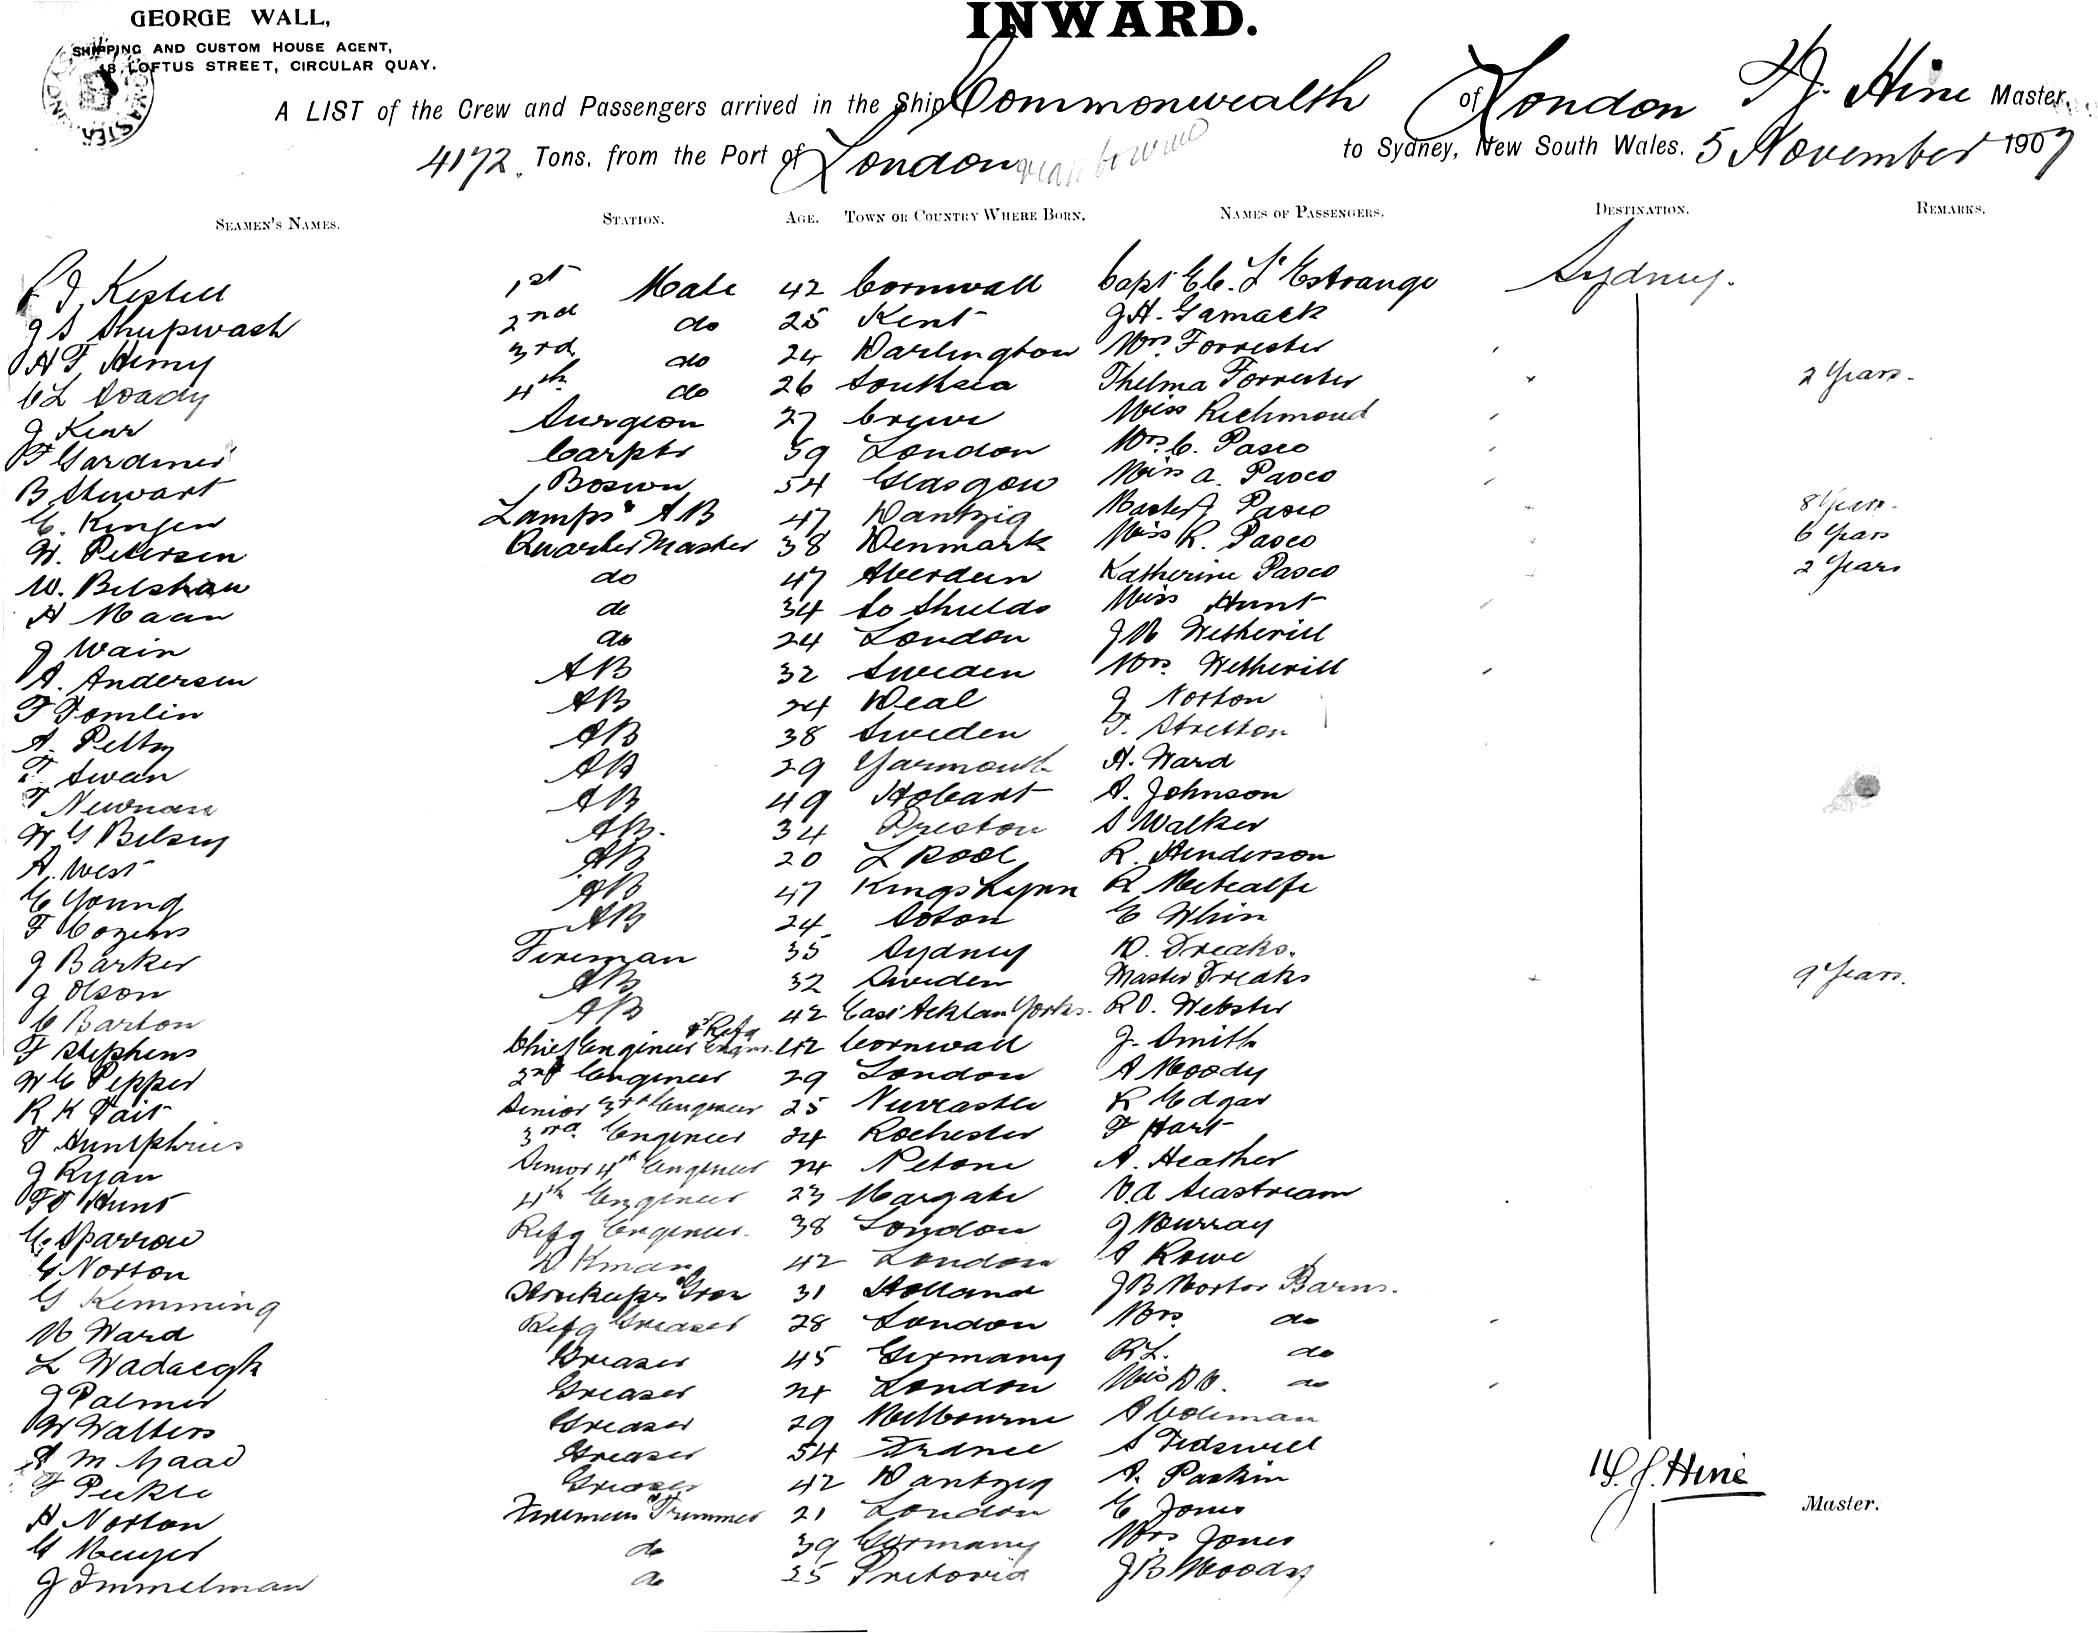 GEORGE WALL,
SHIPPING AND CUSTOM HOUSE AGENT,
48, LOFTUS STREET, CIRCULAR QUAY.
INWARD.
A LIST of the Crew and Passengers arrived in the Ship Commonwealth of London Hine Master,
4172 Tons, from the Port of London to Sydney, New South Wales, 5 November 1907
SEAMEN'S NAMES. STATION. AGE. TOWN OR COUNTRY WHERE BORN. NAMES OF PASSENGERS. DESTINATION. REMARKS.
J Kestell 1st Mate 42 Cornwall Capt L'Estrange Sydney.
J S Shupwash 2nd do 25 Kent J H. Gamack
H F Hemy 3rd do 24 Darlington Mrs Forrester
C L Doady 4th do 26 Southsea Thelma Forrester 2 Years.
J Kear Surgeon 27 Crewe Miss Richmond
F Gardiner Carptr 39 London Mrs C. Pasco
B Stewart Boswn 54 Glasgow Miss A. Pasco
E. Kingen Lamps & AB 47 Dantzig Master J Pasco 8 Years.
W. Petersen Quarter Master 38 Denmark Miss R. Pasco 6 Years
W. Belshaw do 47 Aberdeen Katherine Pasco 2 Years
H Maan do 34 So Shields Miss Hunt
J Wain do 24 London J M Wetherill
A. Andersen AB 32 Sweden Mrs. Wetherill
F Tomlin AB 24 Deal J Norton
A. Petty AB 38 Sweden F. Stretton
F. Swan AB 29 Yarmouth H. Ward
T Newman AB 49 Hobart A. Johnson
W G Belsey AB. 34 Preston S Walker
A. West AB 20 L Pool R. Henderson
E Young AB 47 Kings Lynn R Metcalfe
F Cozens AB 24 Soton E Whin
J Barker Fireman 35 Sydney D. Dreaks.
J Olson AB 32 Sweden Master Dreaks 9 Years.
C Barton AB 42 East Acklam Yorks. R D. Webster
F Stephens Chief Engineer & Refg Engnr. 42 Cornwall J. Smith
W E Pepper 2nd Engineer 29 London A Moody
R K Tait Senior 3rd Engineer 25 Newcastle R Edgar
T Humphries 3rd Engineer 24 Rochester F Hart
J Ryan Senior 4th Engineer 24 Petone A. Heather
F J Hunt 4th Engineer 23 Margate V. A Seastream
E. Sparrow Refg Engineer. 38 London J Murray
G Norton D Kman 42 London A Rowe
G Kemming Storekeeper & Grsr 31 Holland J B Mortor Barns.
M Ward Refg Greaser 28 London Mrs. do
L Wadaegk Greaser 45 Germany R L. do
J Palmer Greaser 24 London Miss D M. do
W Walters Greaser 29 Melbourne A Coleman
Greaser 54 France S Tidswell
F Peikie Greaser 42 Dantzig A. Paskin
H Norton Fireman & Trimmer 21 London E Jones
G Meuyer do 39 Germany Mrs Jones
J Immelman do 25 Pretoria J B Moody
Hine
Master.